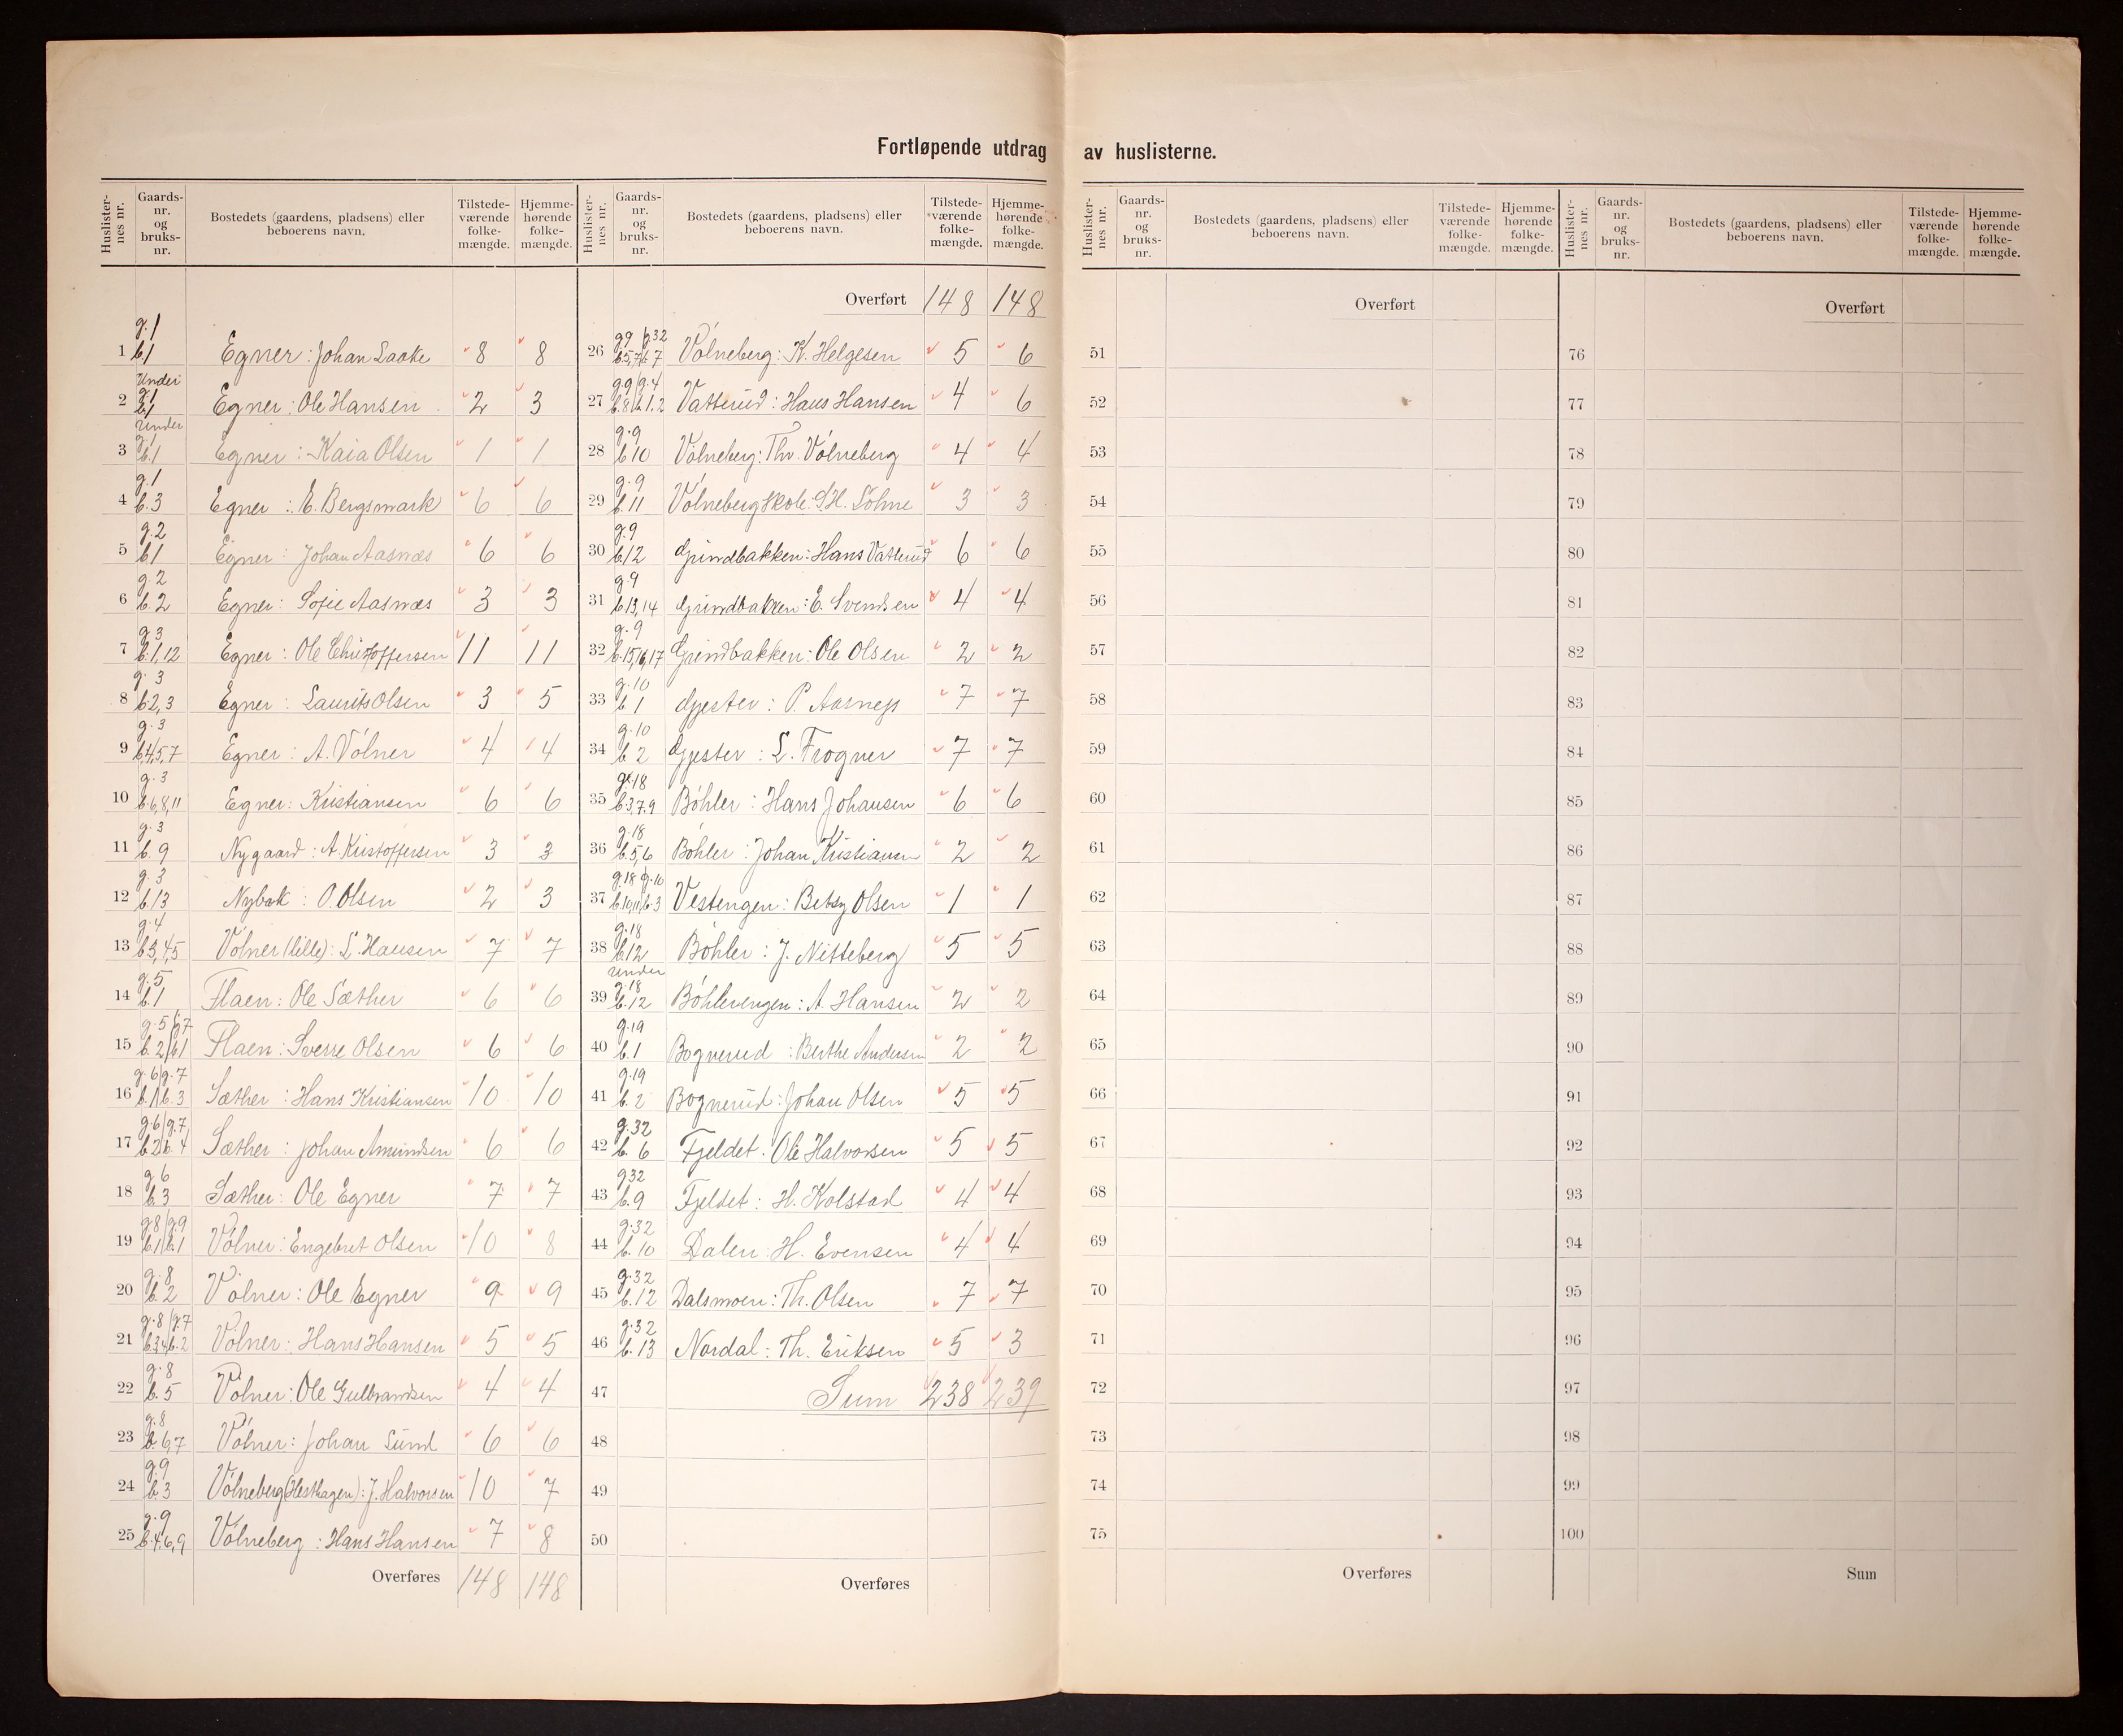 Fortløpende utdrag av huslisterne.
Huslisternes nr. Gaards-nr. og bruks-nr. Bostedets (gaardens, pladsens) eller beboerens navn. Tilstede-værende folke-mængde. Hjemme-hørende folke-mængde.
1 g.1 b.1 Egner: Johan Laake 8 8
2 Under g.1 b.1 Egner: Ole Hansen 2 3
3 Under g.1 b.1 Egner: Kaia Olsen 1 1
4 g.1 b.3 Egner: E. Bergsmark 6 6
5 g.2 b.1 Egner: Johan Aasnæs 6 6
6 g.2 b.2 Egner: Sofie Aasnæs 3 3
7 g.3 b.1,12 Egner: Ole Christoffersen 11 11
8 g.3 b.2,3 Egner: Laurits Olsen 3 5
9 g.3 b.4,5,7 Egner: A. Vólner 4 4
10 g.3 b.6,8,11 Egner: Kristiansen 6 6
11 g.3 b.9 Nygaard: A. Kristoffersen 3 3
12 g.3 b.13 Nybak: O. Olsen 2 3
13 g.4 b.3,4,5 Vólner (lille): L. Hansen 7 7
14 g.5 b.1 Flaen: Ole Sæther 6 6
15 g.5/g.7 b.2/b.1 Flaen: Sverre Olsen 6 6
16 g.6/g.7 b.1/b.3 Sæther: Hans Kristiansen 10 10
17 g.6/g.7 b.2/b.4 Sæther: Johan Amundsen 6 6
18 g.6 b.3 Sæther: Ole Egner 7 7
19 g.8/g.9 b.1/b.1 Vólner: Engebret Olsen 10 8
20 g.8 b.2 Vólner: Ole Egner 9 9
21 g.8/g.7 b.3,4/b.2 Vólner: Hans Hansen 5 5
22 g.8 b.5 Vólner: Ole Gulbrandsen 4 4
23 g.8 b.6,7 Vólner: Johan Sund 6 6
24 g.9 b.3 Vólneberg (Hesthagen): J. Halvorsen 10 7
25 g.9 b.4,6,9 Vólneberg: Hans Hansen 7 8
Overføres 148 148
Huslisternes nr. Gaards-nr. og bruks-nr. Bostedets (gaardens, pladsens) eller beboerens navn. Tilstede-værende folke-mængde. Hjemme-hørende folke-mængde.
Overført 148 148
26 g.9 g.32 b.5,7/b.7 Vólneberg: K. Helgesen 5 6
27 g.9/g.4 b.8/b.1.2 Vatterud: Hans Hansen 4 6
28 g.9 b.10 Vólneberg: Thv. Vólneberg 4 4
29 g.9 b.11 Vólneberg skole: Söhne 3 3
30 g.9 b.12 Grindbakken: Hans Vatterud 6 6
31 g.9 b.13,14 Grindbakken: E. Svendsen 4 4
32 g.9 b.15,16,17 Grindbakken: Ole Olsen 2 2
33 g.10 b.1 Gjester: P. Aasness 7 7
34 g.10 b.2 Gjester: L. Frogner 7 7
35 g.18 b.3,7,9 Bóhler: Hans Johansen 6 6
36 g.18 b.5,6 Bóhler: Johan Kristiansen 2 2
37 g.18 g.10 b.10,11/b.3 Vestengen: Betsy Olsen 1 1
38 g.18 b.12 Bóhler: J. Nitteberg 5 5
39 under g.18 b.12 Bóhlerengen: A. Hansen 2 2
40 g.19 b.1 Bognerud: Berthe Andersen 2 2
41 g.19 b.2 Bognerud: Johan Olsen 5 5
42 g.32 b.6 Fjeldet: Ole Halvorsen 5 5
43 g.32 b.9 Fjeldet: H. Kolstad 4 4
44 g.32 b.10 Dalen: H. Evensen 4 4
45 g.32 b.12 Dalsmoen: Th. Olsen 7 7
46 g.32 b.13 Nordal: Th. Eriksen 5 3
47 Sum 238 239
48
49
50
Overføres
Huslisternes nr. Gaards-nr. og bruks-nr. Bostedets (gaardens, pladsens) eller beboerens navn. Tilstede-værende folke-mængde. Hjemme-hørende folke-mængde.
Overført
51
52
53
54
55
56
57
58
59
60
61
62
63
64
65
66
67
68
69
70
71
72
73
74
75
Overføres
Huslisternes nr. Gaards-nr. og bruks-nr. Bostedets (gaardens, pladsens) eller beboerens navn. Tilstede-værende folke-mængde. Hjemme-hørende folke-mængde.
Overført
76
77
78
79
80
81
82
83
84
85
86
87
88
89
90
91
92
93
94
95
96
97
98
99
100
Sum